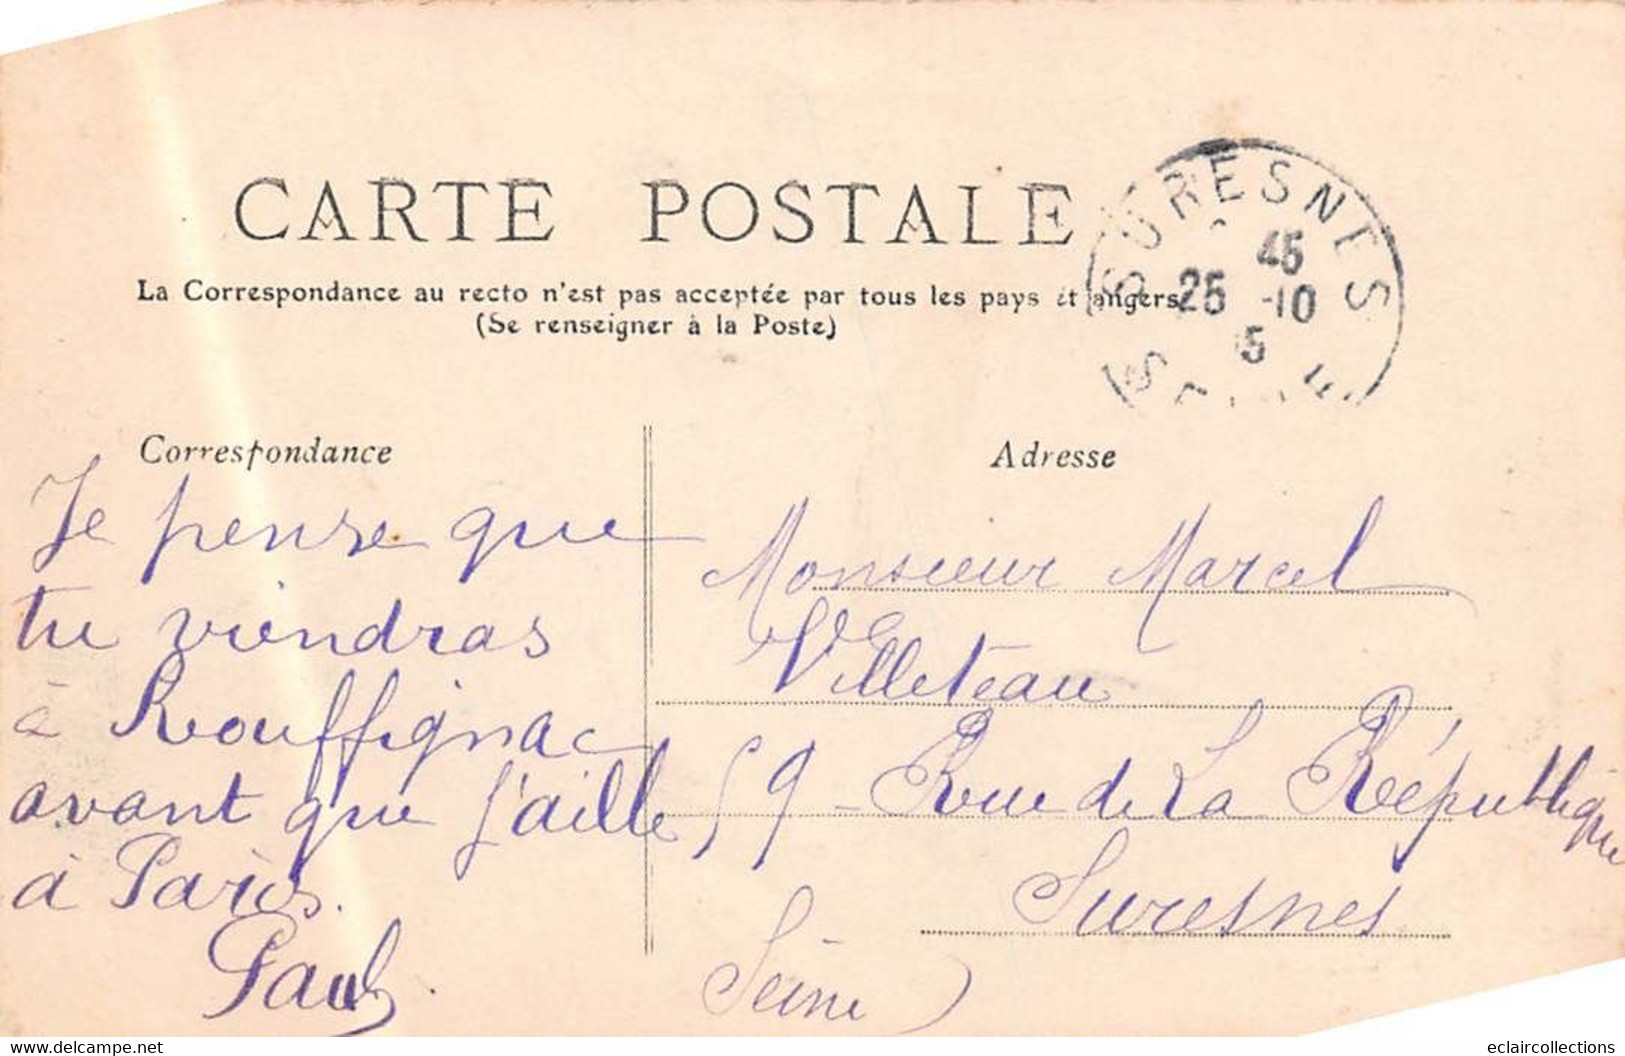 CARTE POSTALE
La Correspondance au recto n'est pas acceptée par tous les pays étrangers
(Se renseigner à la Poste)
SURESNES
45
25 -10
5
Correspondance
Je pense que
tu viendras
à Rouffignac
avant que j'aille
à Paris.
Paul.
Adresse
Monsieur Marcel
Villeteau
59 - Rue de La République
Suresnes
Seine
www.delcampe.net
eclaircollections